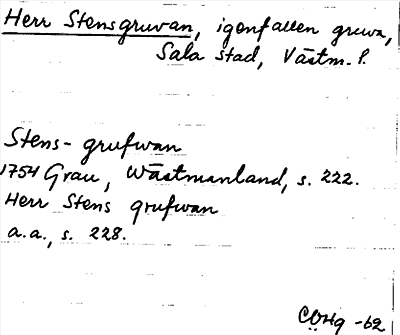 Herr Stensgruvan, igenfallen gruva,
Sala stad, Västm. l.
Stens-grufwan
1754 Grau, Wästmanland, s. 222.
Herr Stens grufwan
a.a., s. 228.
-62